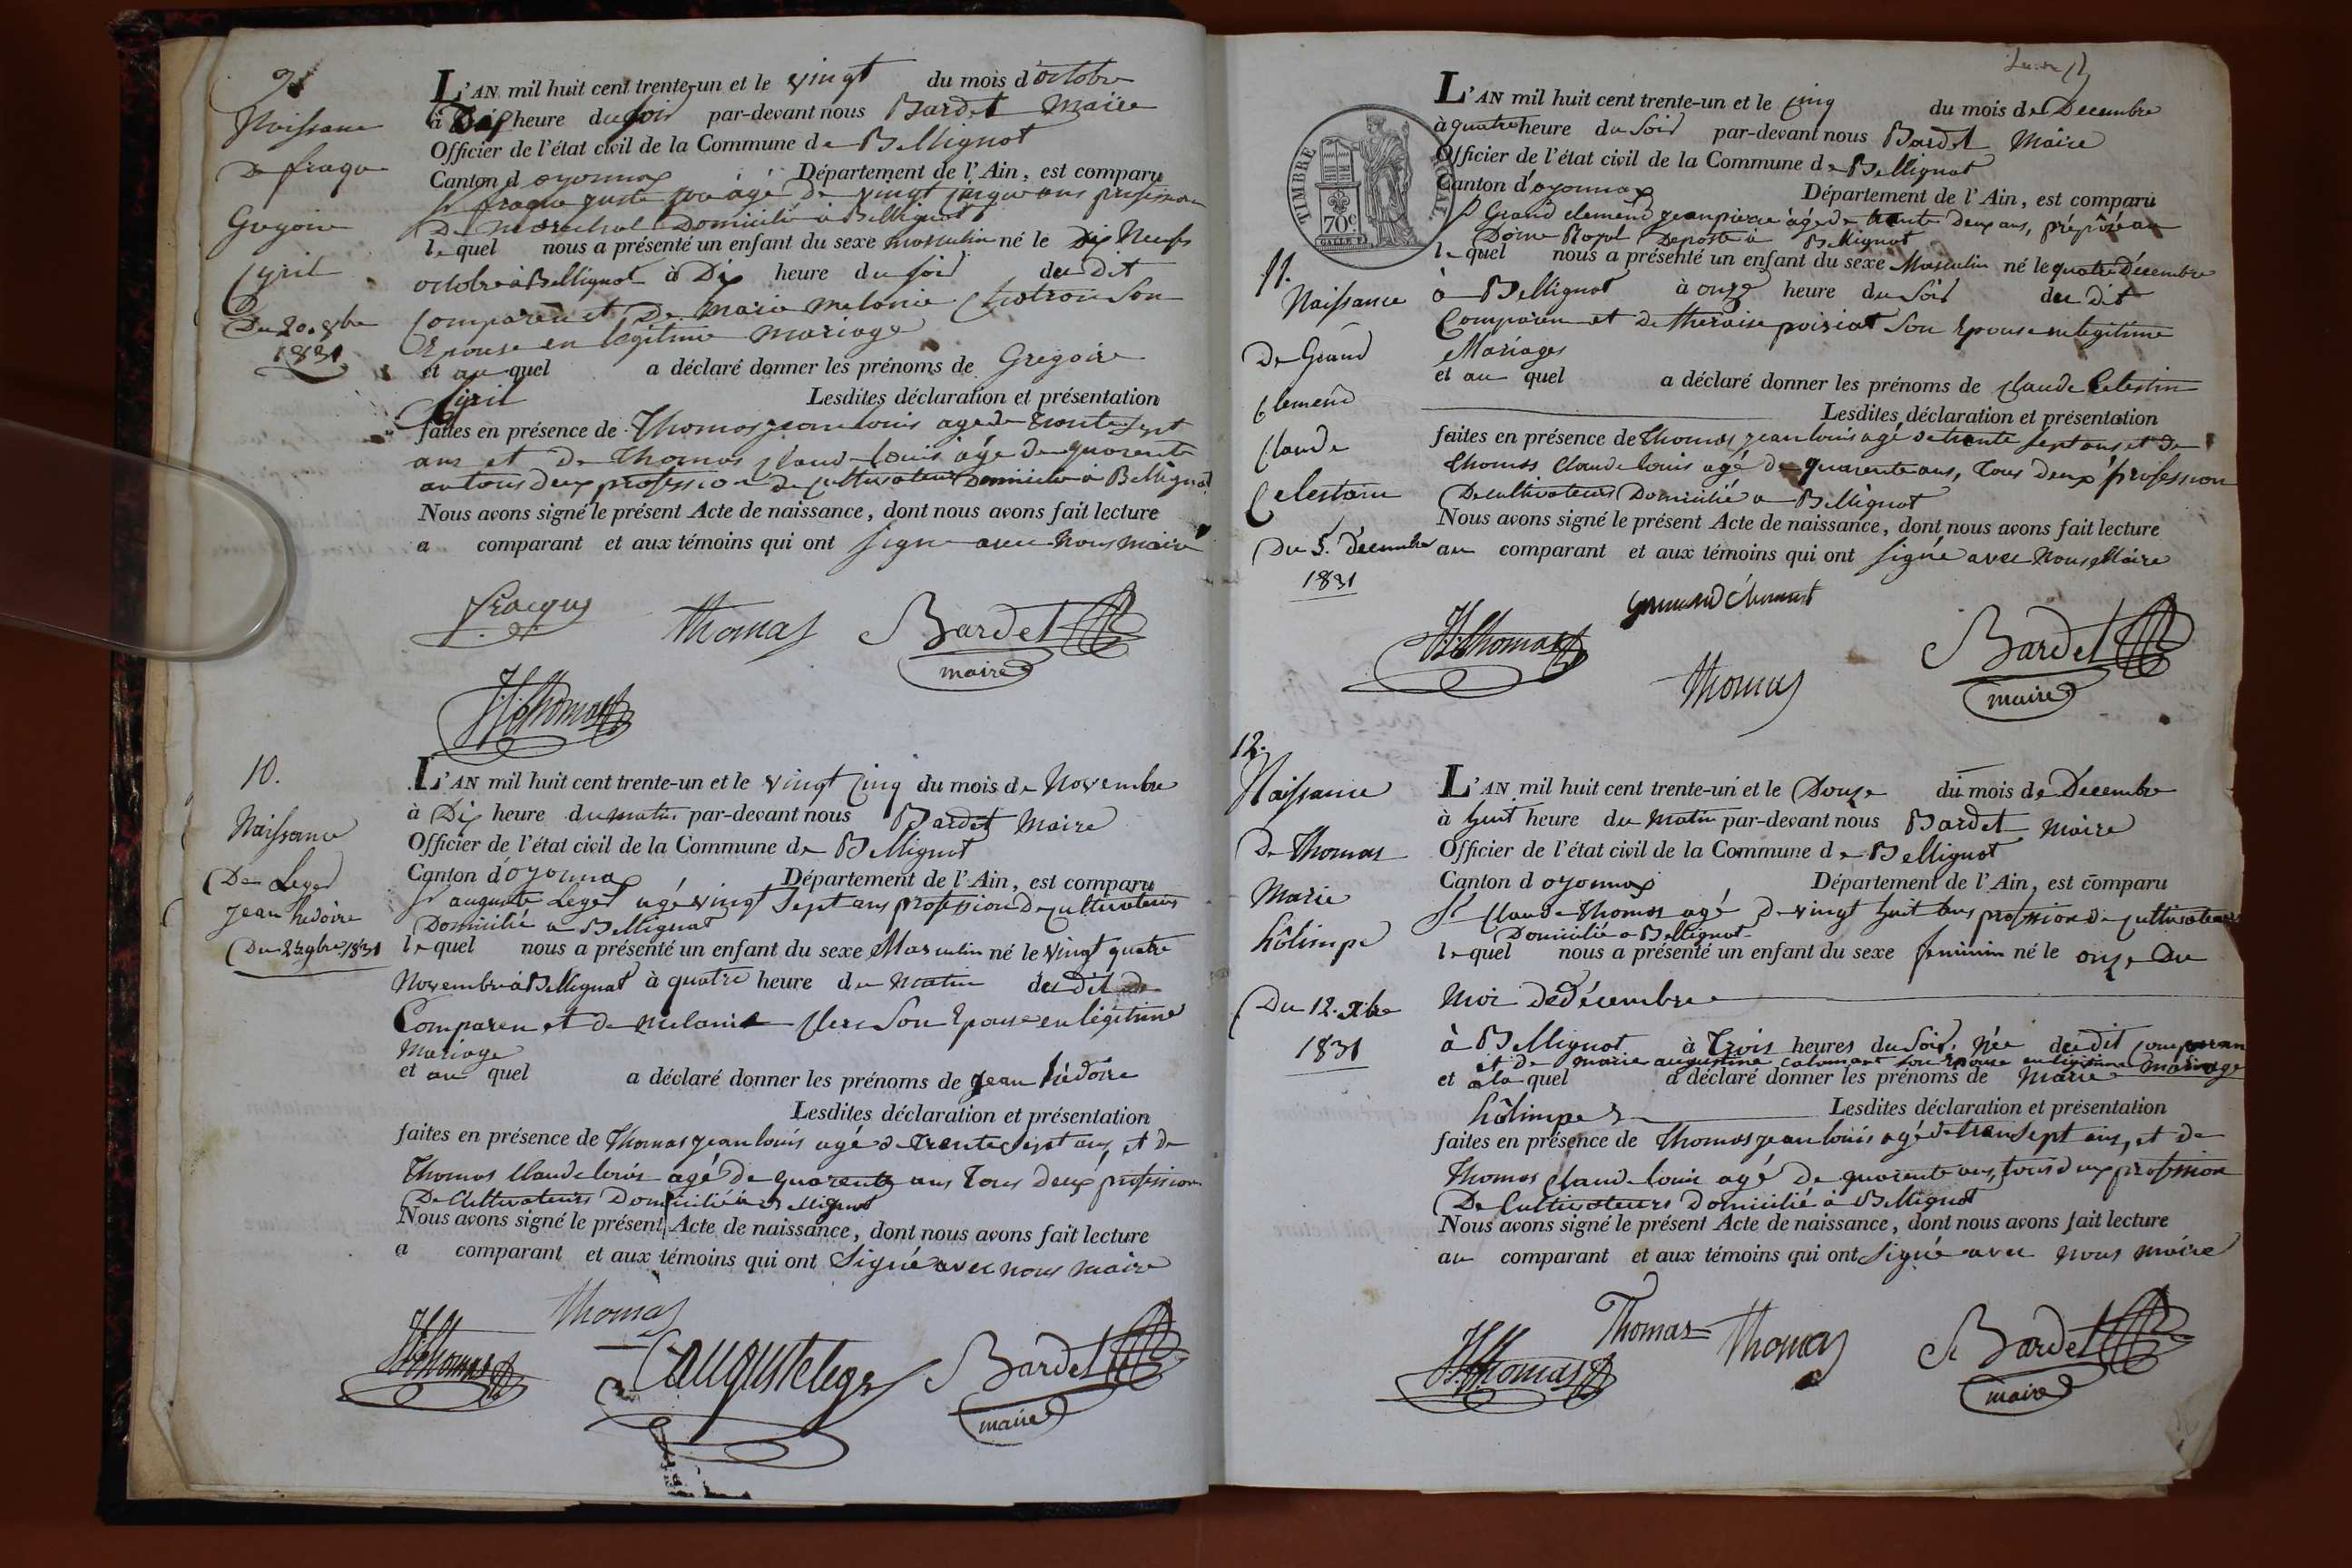 9
Naissance
De fraque
Gregoire
Cyril
Du 20. 8bre
1831
L'AN mil huit cent trente-un et le vingt du mois d'octobre
à heure du soir par-devant nous Bardet Maire
Officier de l'état civil de la Commune de Bellignat
Canton d oyonnax Département de l'Ain, est comparu
Sr fraque juste âgé De vingt cinque ans profession
De marechal Domicilié à Bellignat
lequel nous a présenté un enfant du sexe masculin né le Dix Neufs
octobre à Bellignat à Dix heure du soir du dit
Comparen et De Marie melanie Chatron Son
Epouse en legitime mariage
et au quel a déclaré donner les prénoms de Gregoire
Cyril Lesdites déclaration et présentation
faites en présence de Thomas jean louis age de trente sept
ans et de Thomas Claud louis âgé de quarente
an tous deux profession de cultivateur Domicilié à Bellignat
Nous avons signé le présent Acte de naissance, dont nous avons fait lecture
a comparant et aux témoins qui ont signe avec nous maire
Fracque
Thomas
Bardet
maire
Thomas
10.
Naissance
De Leger
Jean hedoire
Du 25 9bre 1831
L'AN mil huit cent trente-un et le vingt cinq du mois de Novembre
à Dix heure du matin par-devant nous Bardet Maire
Officier de l'état civil de la Commune de Bellignat
Canton d'oyonnax Département de l'Ain, est comparu
Sr auguste Leger agé vingt Sept ans profession De cultivateurs
Domicilié a Bellignat
lequel nous a présenté un enfant du sexe Masculin né le vingt quatre
Novembre à Bellignat à quatre heure du matin du dit
Comparen et de melanie Clerc Son Epouse en légitime
Mariage
et au quel a déclaré donner les prénoms de Jean hédoire
Lesdites déclaration et présentation
faites en présence de Thomas jean louis agé de trente Sept ans, et de
Thomas Claude louis agé de quarente ans Tous deux profession
De Cultivateurs Domicilié à Bellignat
Nous avons signé le présent Acte de naissance, dont nous avons fait lecture
a comparant et aux témoins qui ont Signé avec nous maire
Thomas
Thomas
auguste leger
Bardet
maire
11.
Naissance
De Grand
Clement
Claude
Celestain
Du 5. Décembre
1831
TIMBRE ROYAL
70c
L'AN mil huit cent trente-un et le cinq du mois de Decembre
à quatre heure du Soir par-devant nous Bardet Maire
Officier de l'état civil de la Commune de Bellignat
Canton d'oyonnax Département de l'Ain, est comparu
Sr Grand clemend jean pierre âgé de trente deux ans, préposé au
Doine Royal Deposte à Bellignat
lequel nous a présenté un enfant du sexe Masculin né le quatre Décembre
à Bellignat à onze heure du Soir du dit
Comparen et de theraise poiriat Son Epouse en legitime
Mariages
et au quel a déclaré donner les prénoms de Claude Celestin
Lesdites déclaration et présentation
faites en présence de Thomas jean louis agé de trente sept ans et de
Thomas Claude louis agé de quarente ans, tous deux profession
De cultivateurs Domicilié a Bellignat
Nous avons signé le présent Acte de naissance, dont nous avons fait lecture
au comparant et aux témoins qui ont signé avec Nous Maire
Thomas
Thomas
Bardet
maire
12.
Naissance
De Thomas
Marie
hôlimpe
Du 12. Xbre
1831
L'AN mil huit cent trente-un et le Douze du mois de Decembre
à huit heure du Matin par-devant nous Bardet Maire
Officier de l'état civil de la Commune de Bellignat
Canton d oyonnax Département de l'Ain, est comparu
Sr Claude Thomas agé De vingt huit ans profession de cultivateur
Domicilié a Bellignat
lequel nous a présenté un enfant du sexe feminin né le onze Du
Moi de décembre
à Bellignat à Trois heures du Soir, Née du dit Comparen
et De marie augustine Calamant son Epouse en légitime mariage
et a la quel a déclaré donner les prénoms de Marie
hôlimpe Lesdites déclaration et présentation
faites en présence de Thomas jean louis agé de tran sept ans, et de
Thomas Claud louis agé De quarente ans, tous deux profession
De Cultivateurs Domicilié à Bellignat
Nous avons signé le présent Acte de naissance, dont nous avons fait lecture
au comparant et aux témoins qui ont Signé avec nous maire
Thomas
Thomas
Thomas
Bardet
maire